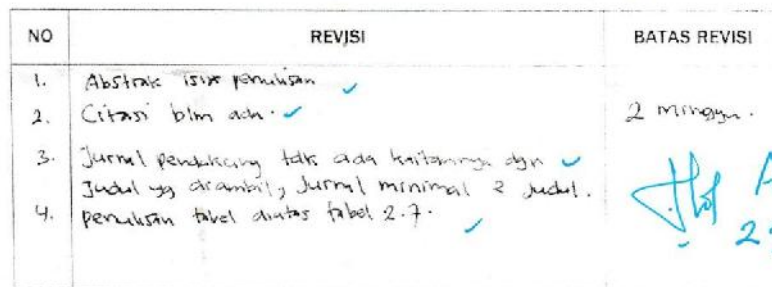 NO REVISI BATAS REVISI
1. Abstrak penulisan
2. Citasi blm ada. 2 minggu.
3. Jurnal pendukung tdk ada kaitannya dgn
Judul yg diambil, Jurnal minimal 2 Judul.
4. penulisan tabel diatas tabel 2.7.